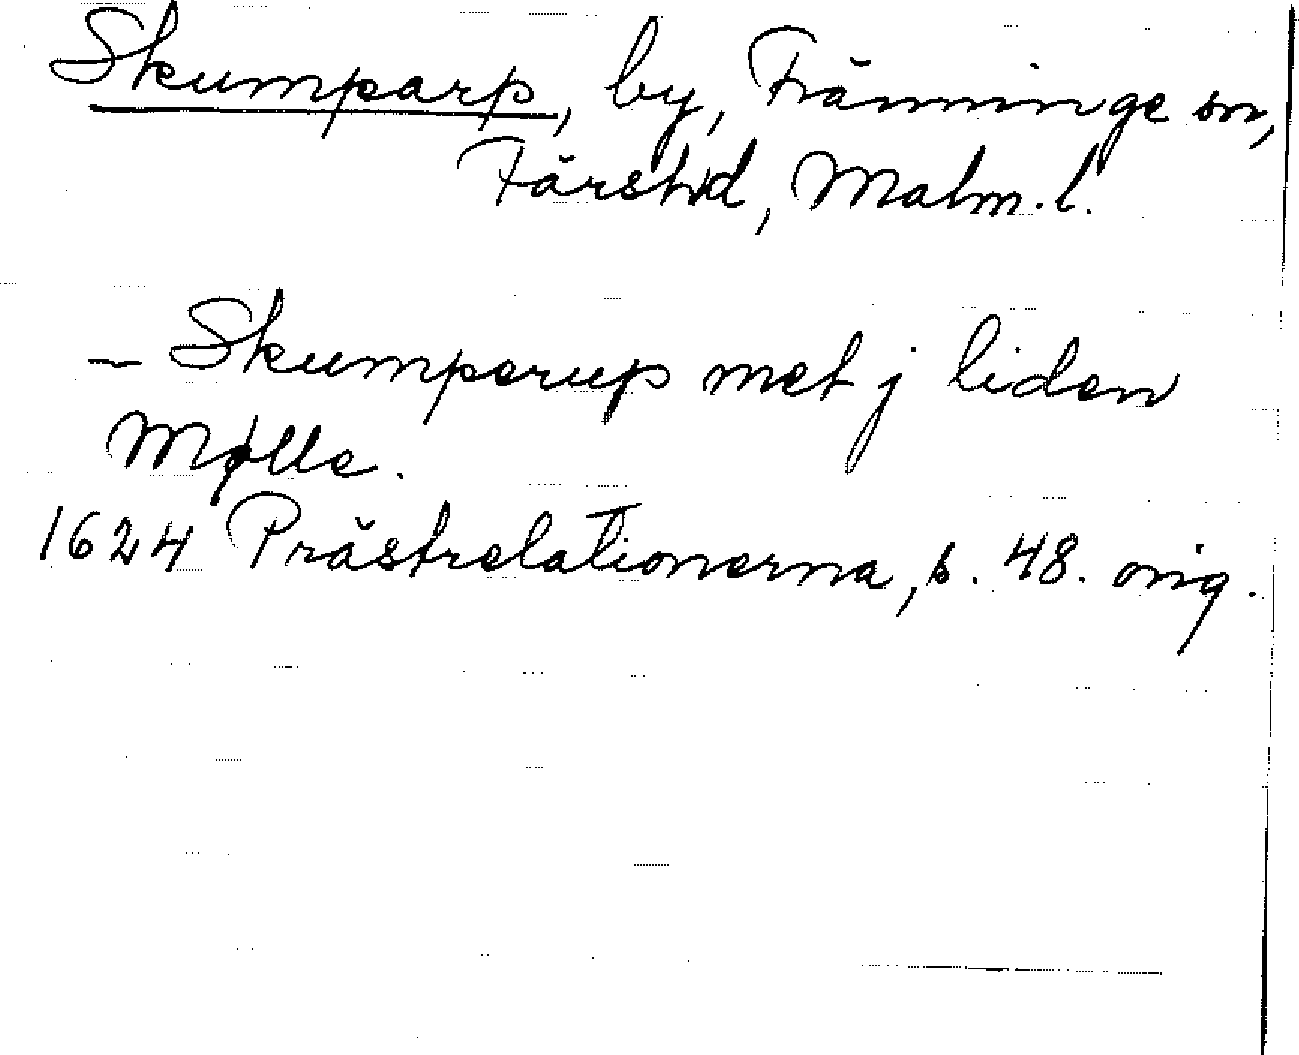 Skumparp, by, Fränninge sn,
Färs hd, Malm. l.
– Skumperup met j liden
Mølle.
1624 Prästrelationerna, s. 48. orig.